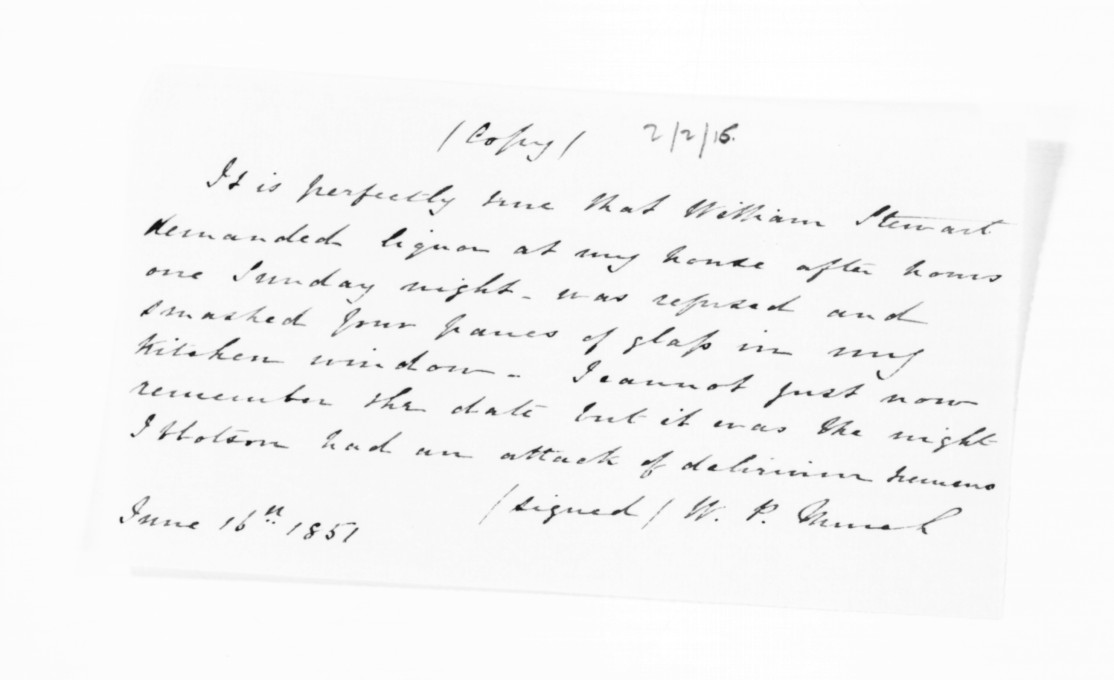 (Copy) 2/2/16.
It is perfectly true that William Stewart
demanded liquor at my house after hours
one Sunday night - was refused and
smashed four panes of glass in my
kitchen window - I cannot just now
remember the date but it was the night
Ibbotson had an attack of delirium tremens
(signed) W. P.
June 16th 1851